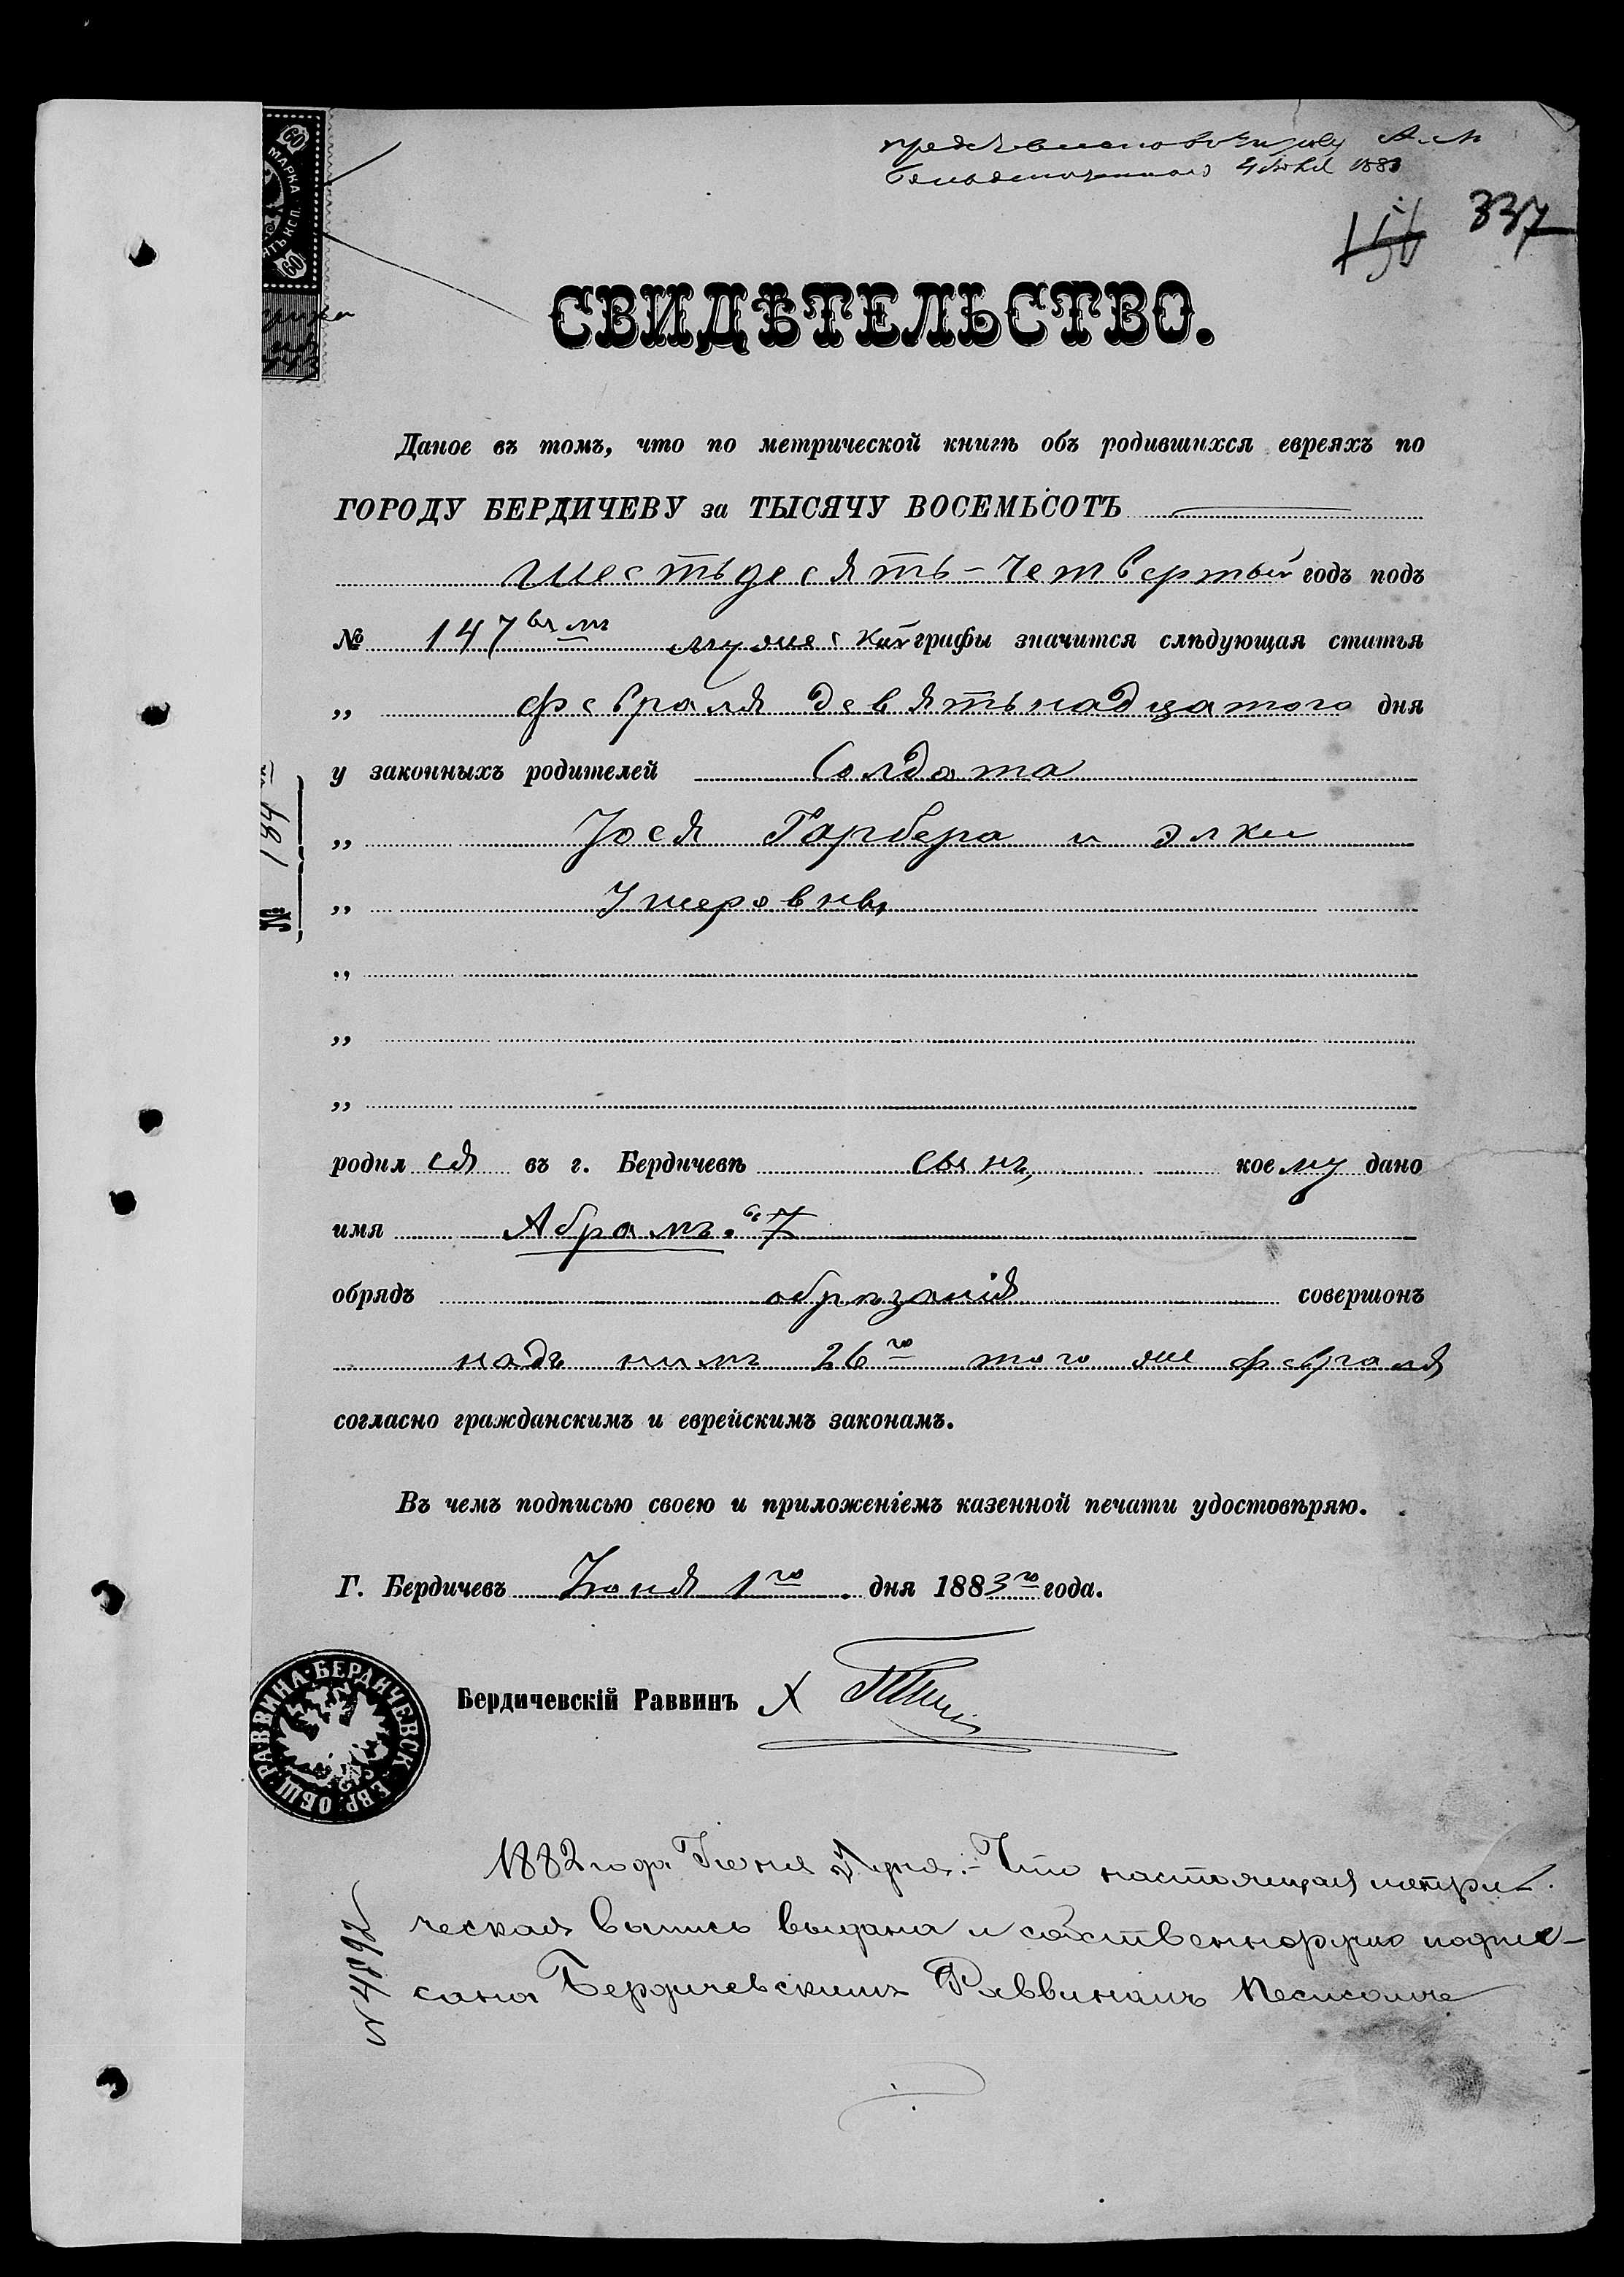 60
МАРКА
60
337
СВИДѢТЕЛЬСТВО.
Даное въ томъ, что по метрической книгѣ объ родившихся евреяхъ по
ГОРОДУ БЕРДИЧЕВУ за ТЫСЯЧУ ВОСЕМЬСОТЪ
шестьдесять-четвертый годъ подъ
№ 147 мужеской графы значится слѣдующая статья
„ февраля девятьнадцатого дня
у законныхъ родителей Солдата
„ Іося Гарбера и Элки
„ Ушеровны
„
„
„
родил ся въ г. Бердичевѣ сынъ, кое му дано
имя Абрамъ.
обрядъ обрѣзанія совершонъ
надъ нимъ 26го того же февраля
согласно гражданскимъ и еврейскимъ законамъ.
Въ чемъ подписью своею и приложеніемъ казенной печати удостовѣряю.
Г. Бердичевъ Іюня 1го дня 1883го года.
Бердичевскій Раввинъ
РАВВИНА·БЕРДИЧЕВСК·ЕВР·ОБЩ·
№ 184
1882 года Іюня дня:- Что настоящая метри-
ческая выпись выдана и собственноручно подпи-
сана Бердичевскимъ Раввиномъ